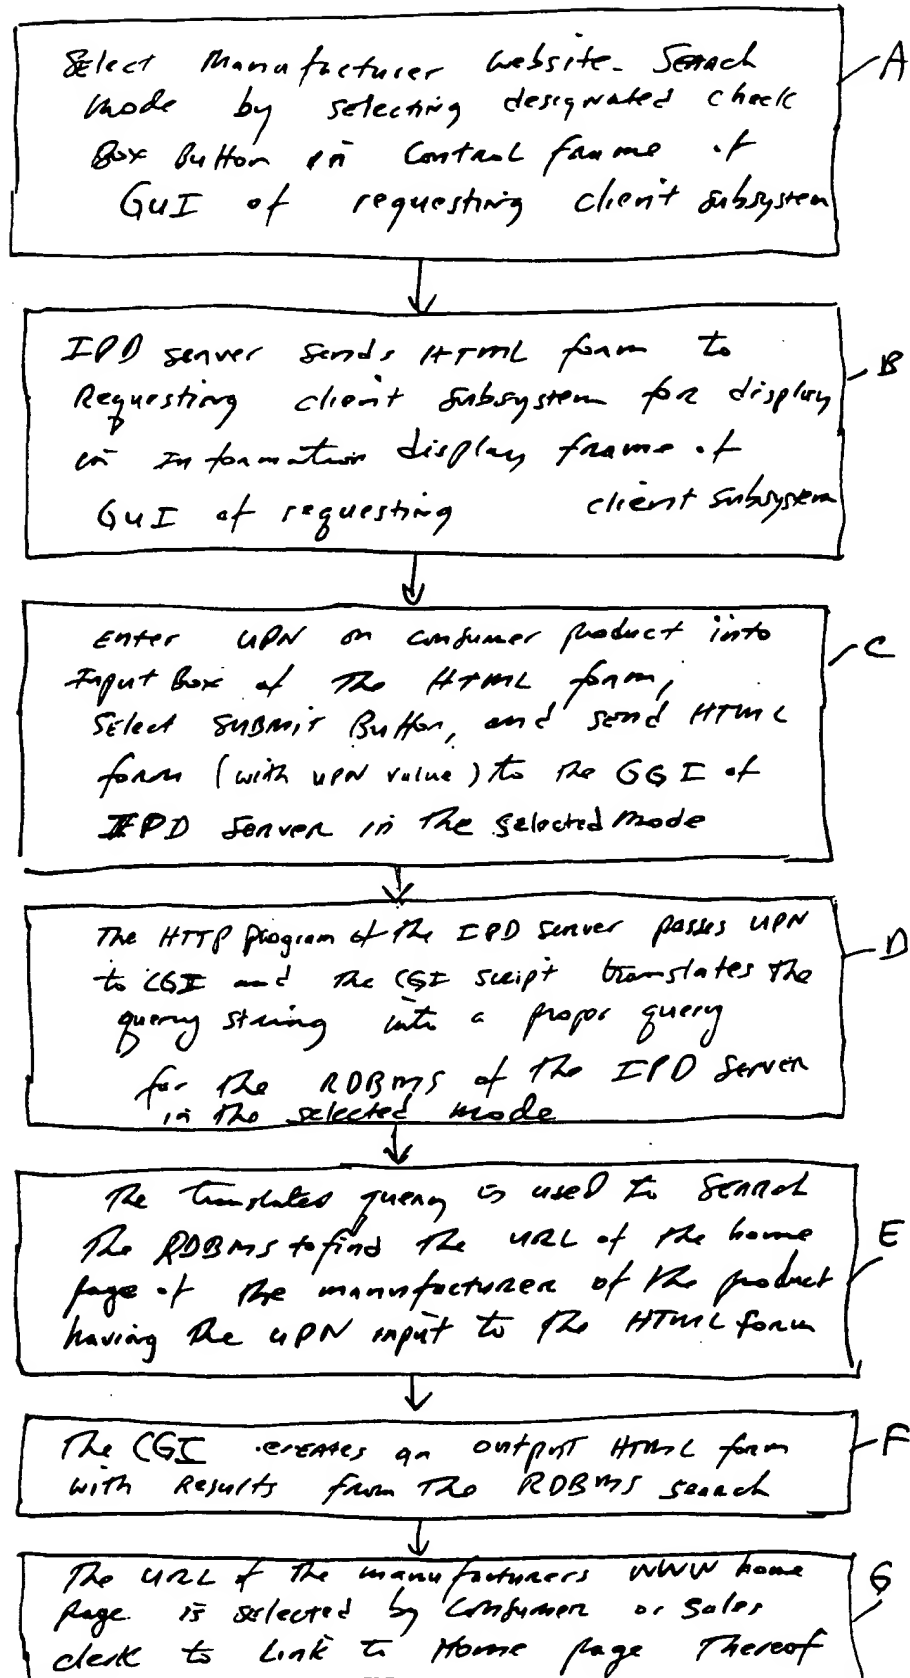 Select Manufacturer Website- Search
Mode by selecting designated check
Box Button in Control frame of
GUI of requesting client subsystem
A
IPD server sends HTML form to
Requesting client subsystem for display
in Information display frame of
GUI of requesting client subsystem
B
Enter UPN on consumer product into
Input Box of the HTML form,
Select SUBMIT Button, and send HTML
form (with UPN value) to the GGI of
IPD Server in the selected mode
C
The HTTP program of the IPD server passes UPN
to CGI and the CGI script translates the
query string into a propor query
for the RDBMS of the IPD Server
in the selected mode
D
The translated query is used to Search
The RDBMS to find the URL of the home
page of the manufacturer of the product
having the UPN input to the HTML form
E
The CGI creates an output HTML form
with Results from the RDBMS search
F
The URL of the manufacturers WWW home
Page is selected by Consumer or Sales
clerk to Link to Home page Thereof
G